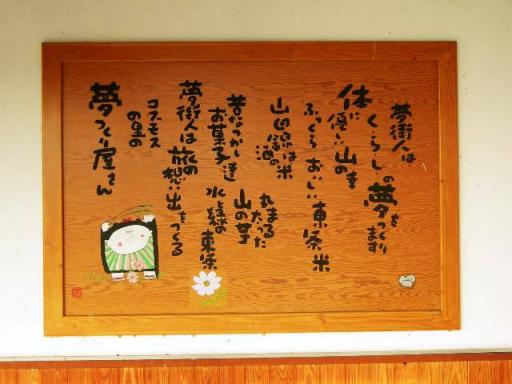 夢街人は
くらしの夢を
つくります
体に
優しい山の幸
ふっくらおいしい東条米
山田錦は米
お酒の
丸まるた
たった
山の芋
昔なつかし
お菓子達
水と緑の東条
夢街人は旅の
想い出をつくる
コスモス
の里の
夢つくり屋さん